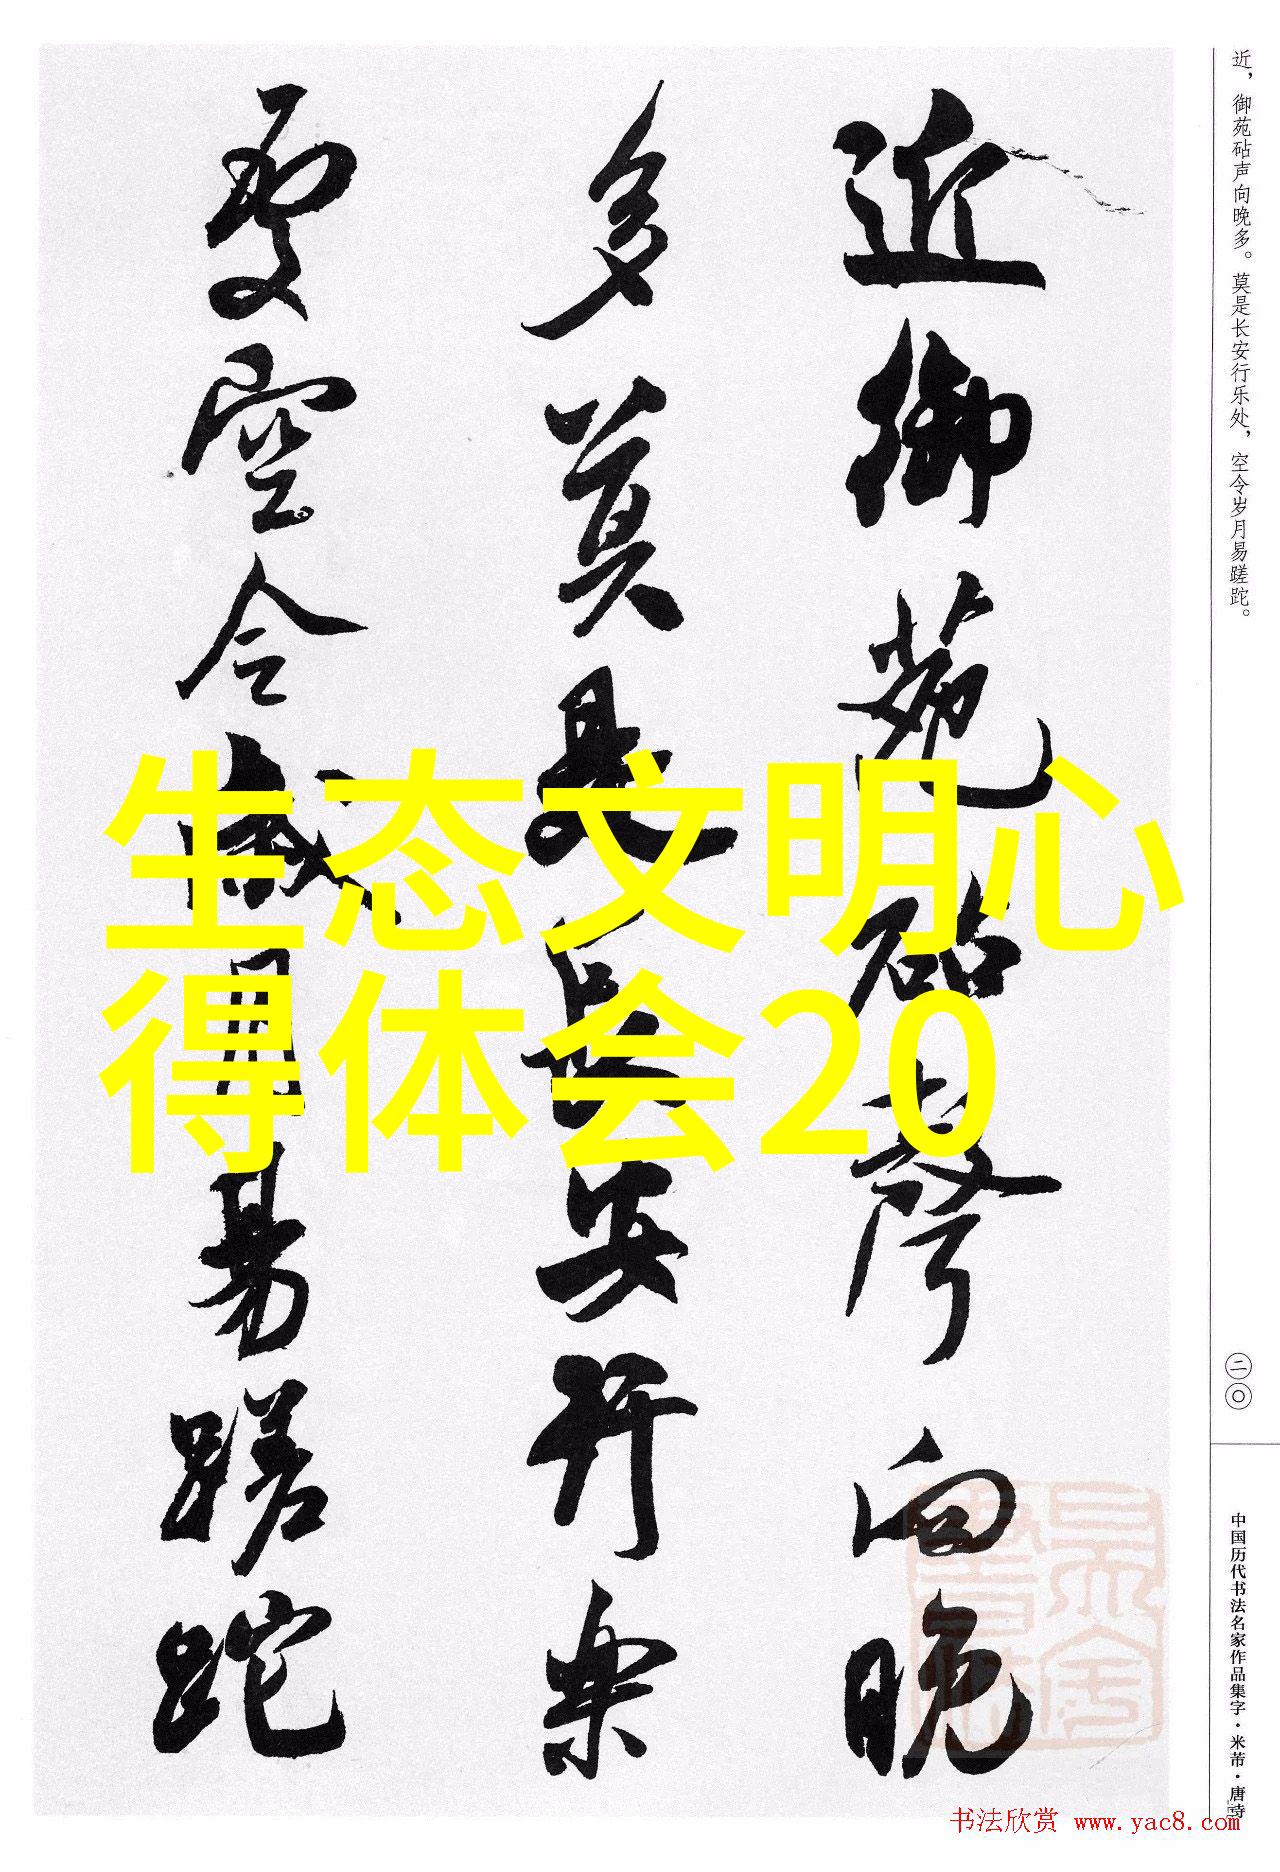 近，御苑砧声向晚多。莫是长安行乐处，空令岁月易蹉跎。
近御苑砧聲向晚
多莫是長安行樂
處空令歲月易蹉跎
生态文明心
得体会20
二〇
中国历代书法名家作品集字·米芾·唐诗
书法欣赏 www.yac8.com